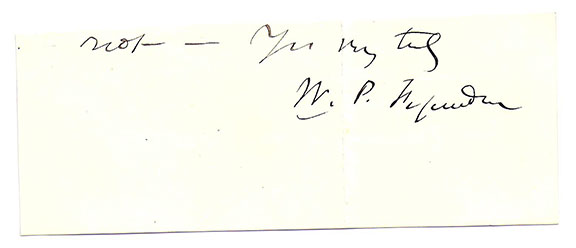 not — Yrs very truly
W. P. Fessenden